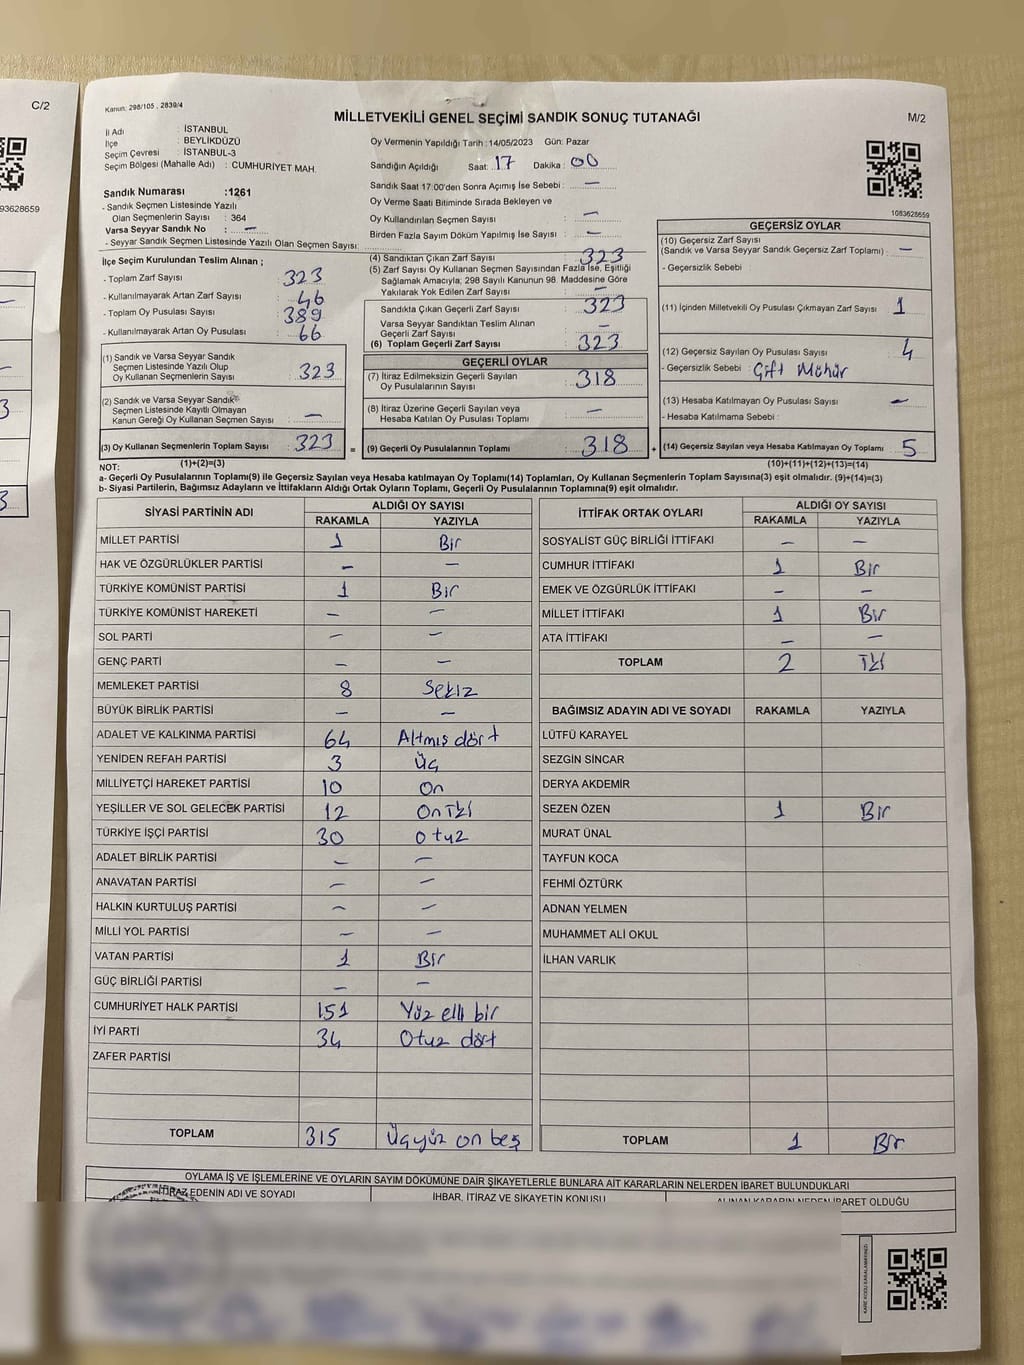 C/2
93628659
Kanun: 298/105 , 2839/4
MİLLETVEKİLİ GENEL SEÇİMİ SANDIK SONUÇ TUTANAĞI
M/2
İl Adı : İSTANBUL
İlçe : BEYLİKDÜZÜ
Seçim Çevresi : İSTANBUL-3
Seçim Bölgesi (Mahalle Adı) : CUMHURİYET MAH.
Oy Vermenin Yapıldığı Tarih :14/05/2023 Gün: Pazar
Sandığın Açıldığı Saat: 17 Dakika : 00
Sandık Saat 17:00'den Sonra Açımış İse Sebebi : —
Oy Verme Saati Bitiminde Sırada Bekleyen ve
Oy Kullandırılan Seçmen Sayısı : —
Birden Fazla Sayım Döküm Yapılmış İse Sayısı : —
1083628659
Sandık Numarası :1261
- Sandık Seçmen Listesinde Yazılı
Olan Seçmenlerin Sayısı : 364
Varsa Seyyar Sandık No : —
- Seyyar Sandık Seçmen Listesinde Yazılı Olan Seçmen Sayısı:
İlçe Seçim Kurulundan Teslim Alınan ;
- Toplam Zarf Sayısı : 323
- Kullanılmayarak Artan Zarf Sayısı : 46
- Toplam Oy Pusulası Sayısı : 389
- Kullanılmayarak Artan Oy Pusulası : 66
(1) Sandık ve Varsa Seyyar Sandık
Seçmen Listesinde Yazılı Olup
Oy Kullanan Seçmenlerin Sayısı : 323
(2) Sandık ve Varsa Seyyar Sandık
Seçmen Listesinde Kayıtlı Olmayan
Kanun Gereği Oy Kullanan Seçmen Sayısı : —
(3) Oy Kullanan Seçmenlerin Toplam Sayısı : 323
(4) Sandıktan Çıkan Zarf Sayısı : 323
(5) Zarf Sayısı Oy Kullanan Seçmen Sayısından Fazla İse, Eşitliği
Sağlamak Amacıyla; 298 Sayılı Kanunun 98. Maddesine Göre
Yakılarak Yok Edilen Zarf Sayısı : —
Sandıkta Çıkan Geçerli Zarf Sayısı : 323
Varsa Seyyar Sandıktan Teslim Alınan
Geçerli Zarf Sayısı : —
(6) Toplam Geçerli Zarf Sayısı : 323
GEÇERLİ OYLAR
(7) İtiraz Edilmeksizin Geçerli Sayılan
Oy Pusulalarının Sayısı : 318
(8) İtiraz Üzerine Geçerli Sayılan veya
Hesaba Katılan Oy Pusulası Toplamı : —
= (9) Geçerli Oy Pusulalarının Toplamı : 318 +
GEÇERSİZ OYLAR
(10) Geçersiz Zarf Sayısı
(Sandık ve Varsa Seyyar Sandık Geçersiz Zarf Toplamı) : —
- Geçersizlik Sebebi :
(11) İçinden Milletvekili Oy Pusulası Çıkmayan Zarf Sayısı : 1
(12) Geçersiz Sayılan Oy Pusulası Sayısı : 4
- Geçersizlik Sebebi : Çift Mühür
(13) Hesaba Katılmayan Oy Pusulası Sayısı : —
- Hesaba Katılmama Sebebi :
(14) Geçersiz Sayılan veya Hesaba Katılmayan Oy Toplamı : 5
NOT: (1)+(2)=(3)
(10)+(11)+(12)+(13)=(14)
a- Geçerli Oy Pusulalarının Toplamı(9) ile Geçersiz Sayılan veya Hesaba katılmayan Oy Toplamı(14) Toplamları, Oy Kullanan Seçmenlerin Toplam Sayısına(3) eşit olmalıdır. (9)+(14)=(3)
b- Siyasi Partilerin, Bağımsız Adayların ve İttifakların Aldığı Ortak Oyların Toplamı, Geçerli Oy Pusulalarının Toplamına(9) eşit olmalıdır.
SİYASİ PARTİNİN ADI ALDIĞI OY SAYISI
RAKAMLA YAZIYLA
MİLLET PARTİSİ 1 Bir
HAK VE ÖZGÜRLÜKLER PARTİSİ — —
TÜRKİYE KOMÜNİST PARTİSİ 1 Bir
TÜRKİYE KOMÜNİST HAREKETİ — —
SOL PARTİ — —
GENÇ PARTİ — —
MEMLEKET PARTİSİ 8 Sekiz
BÜYÜK BİRLİK PARTİSİ — —
ADALET VE KALKINMA PARTİSİ 64 Altmış dört
YENİDEN REFAH PARTİSİ 3 Üç
MİLLİYETÇİ HAREKET PARTİSİ 10 On
YEŞİLLER VE SOL GELECEK PARTİSİ 12 On İki
TÜRKİYE İŞÇİ PARTİSİ 30 Otuz
ADALET BİRLİK PARTİSİ — —
ANAVATAN PARTİSİ — —
HALKIN KURTULUŞ PARTİSİ — —
MİLLİ YOL PARTİSİ — —
VATAN PARTİSİ 1 Bir
GÜÇ BİRLİĞİ PARTİSİ — —
CUMHURİYET HALK PARTİSİ 151 Yüz elli bir
İYİ PARTİ 34 Otuz dört
ZAFER PARTİSİ
TOPLAM 315 Üçyüz on beş
İTTİFAK ORTAK OYLARI ALDIĞI OY SAYISI
RAKAMLA YAZIYLA
SOSYALİST GÜÇ BİRLİĞİ İTTİFAKI — —
CUMHUR İTTİFAKI 1 Bir
EMEK VE ÖZGÜRLÜK İTTİFAKI — —
MİLLET İTTİFAKI 1 Bir
ATA İTTİFAKI — —
TOPLAM 2 İki
BAĞIMSIZ ADAYIN ADI VE SOYADI RAKAMLA YAZIYLA
LÜTFÜ KARAYEL
SEZGİN SİNCAR
DERYA AKDEMİR
SEZEN ÖZEN 1 Bir
MURAT ÜNAL
TAYFUN KOCA
FEHMİ ÖZTÜRK
ADNAN YELMEN
MUHAMMET ALİ OKUL
İLHAN VARLIK
TOPLAM 1 Bir
OYLAMA İŞ VE İŞLEMLERİNE VE OYLARIN SAYIM DÖKÜMÜNE DAİR ŞİKAYETLERLE BUNLARA AİT KARARLARIN NELERDEN İBARET BULUNDUKLARI
İTİRAZ EDENİN ADI VE SOYADI
İHBAR, İTİRAZ VE ŞİKAYETİN KONUSU
ALINAN KARARIN NEDEN İBARET OLDUĞU
KARE KODU KARALAMAYINIZ!